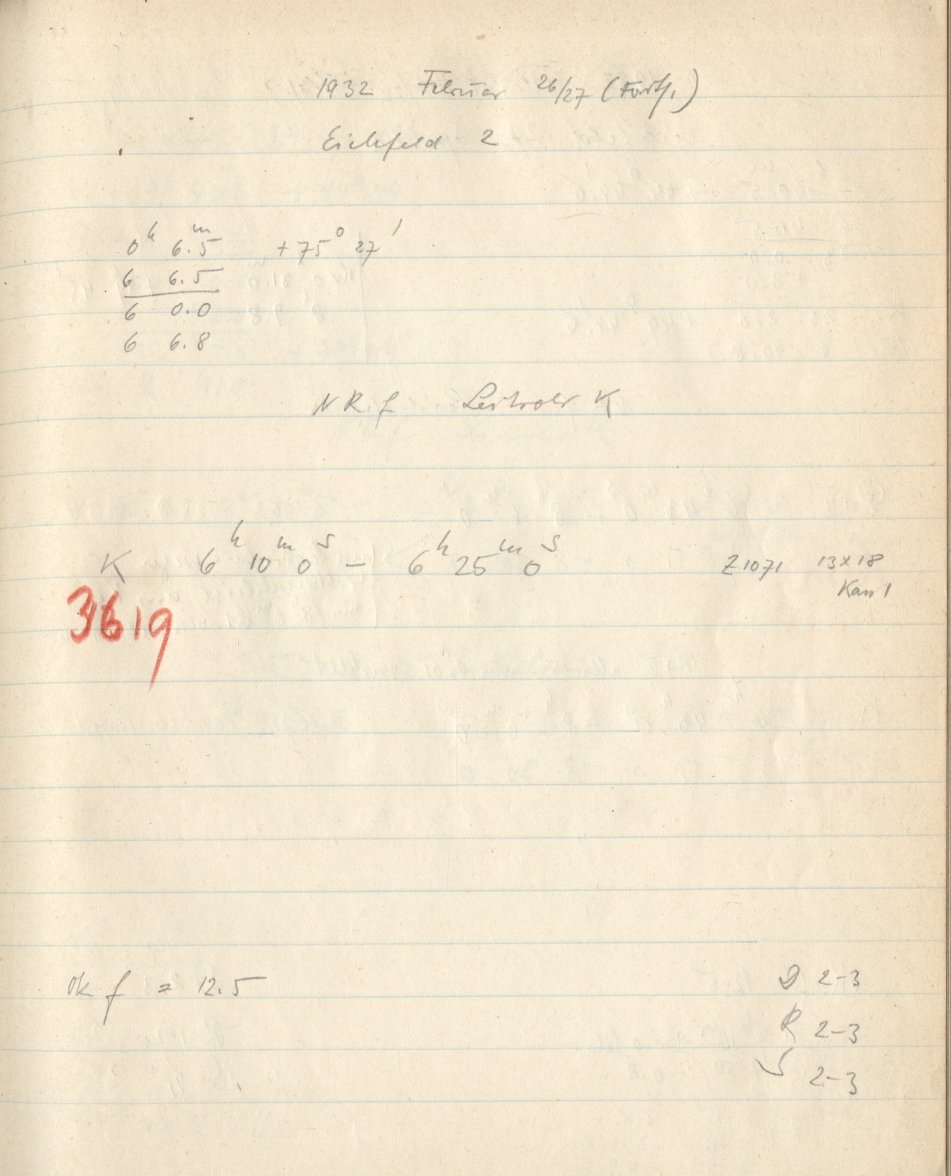 1932 Februar 26/27 (Forts.)
Eichfeld 2
0h 6.5m +75° 27'
6 6.5
6 0.0
6 6.8
N R f Leitrohr K
K 6h 10m 0s – 6h 25m 0s Z1071 13x18
3619
Ok f = 12.5
D 2-3
R 2-3
S 2-3